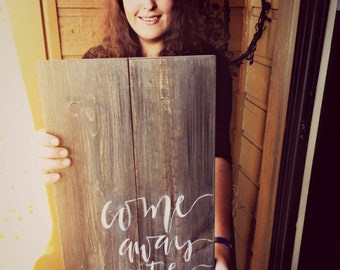 come
away